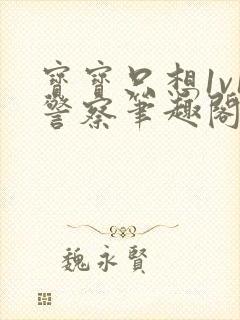 寶寶只想1v1
警察筆趣閣
魏永賢